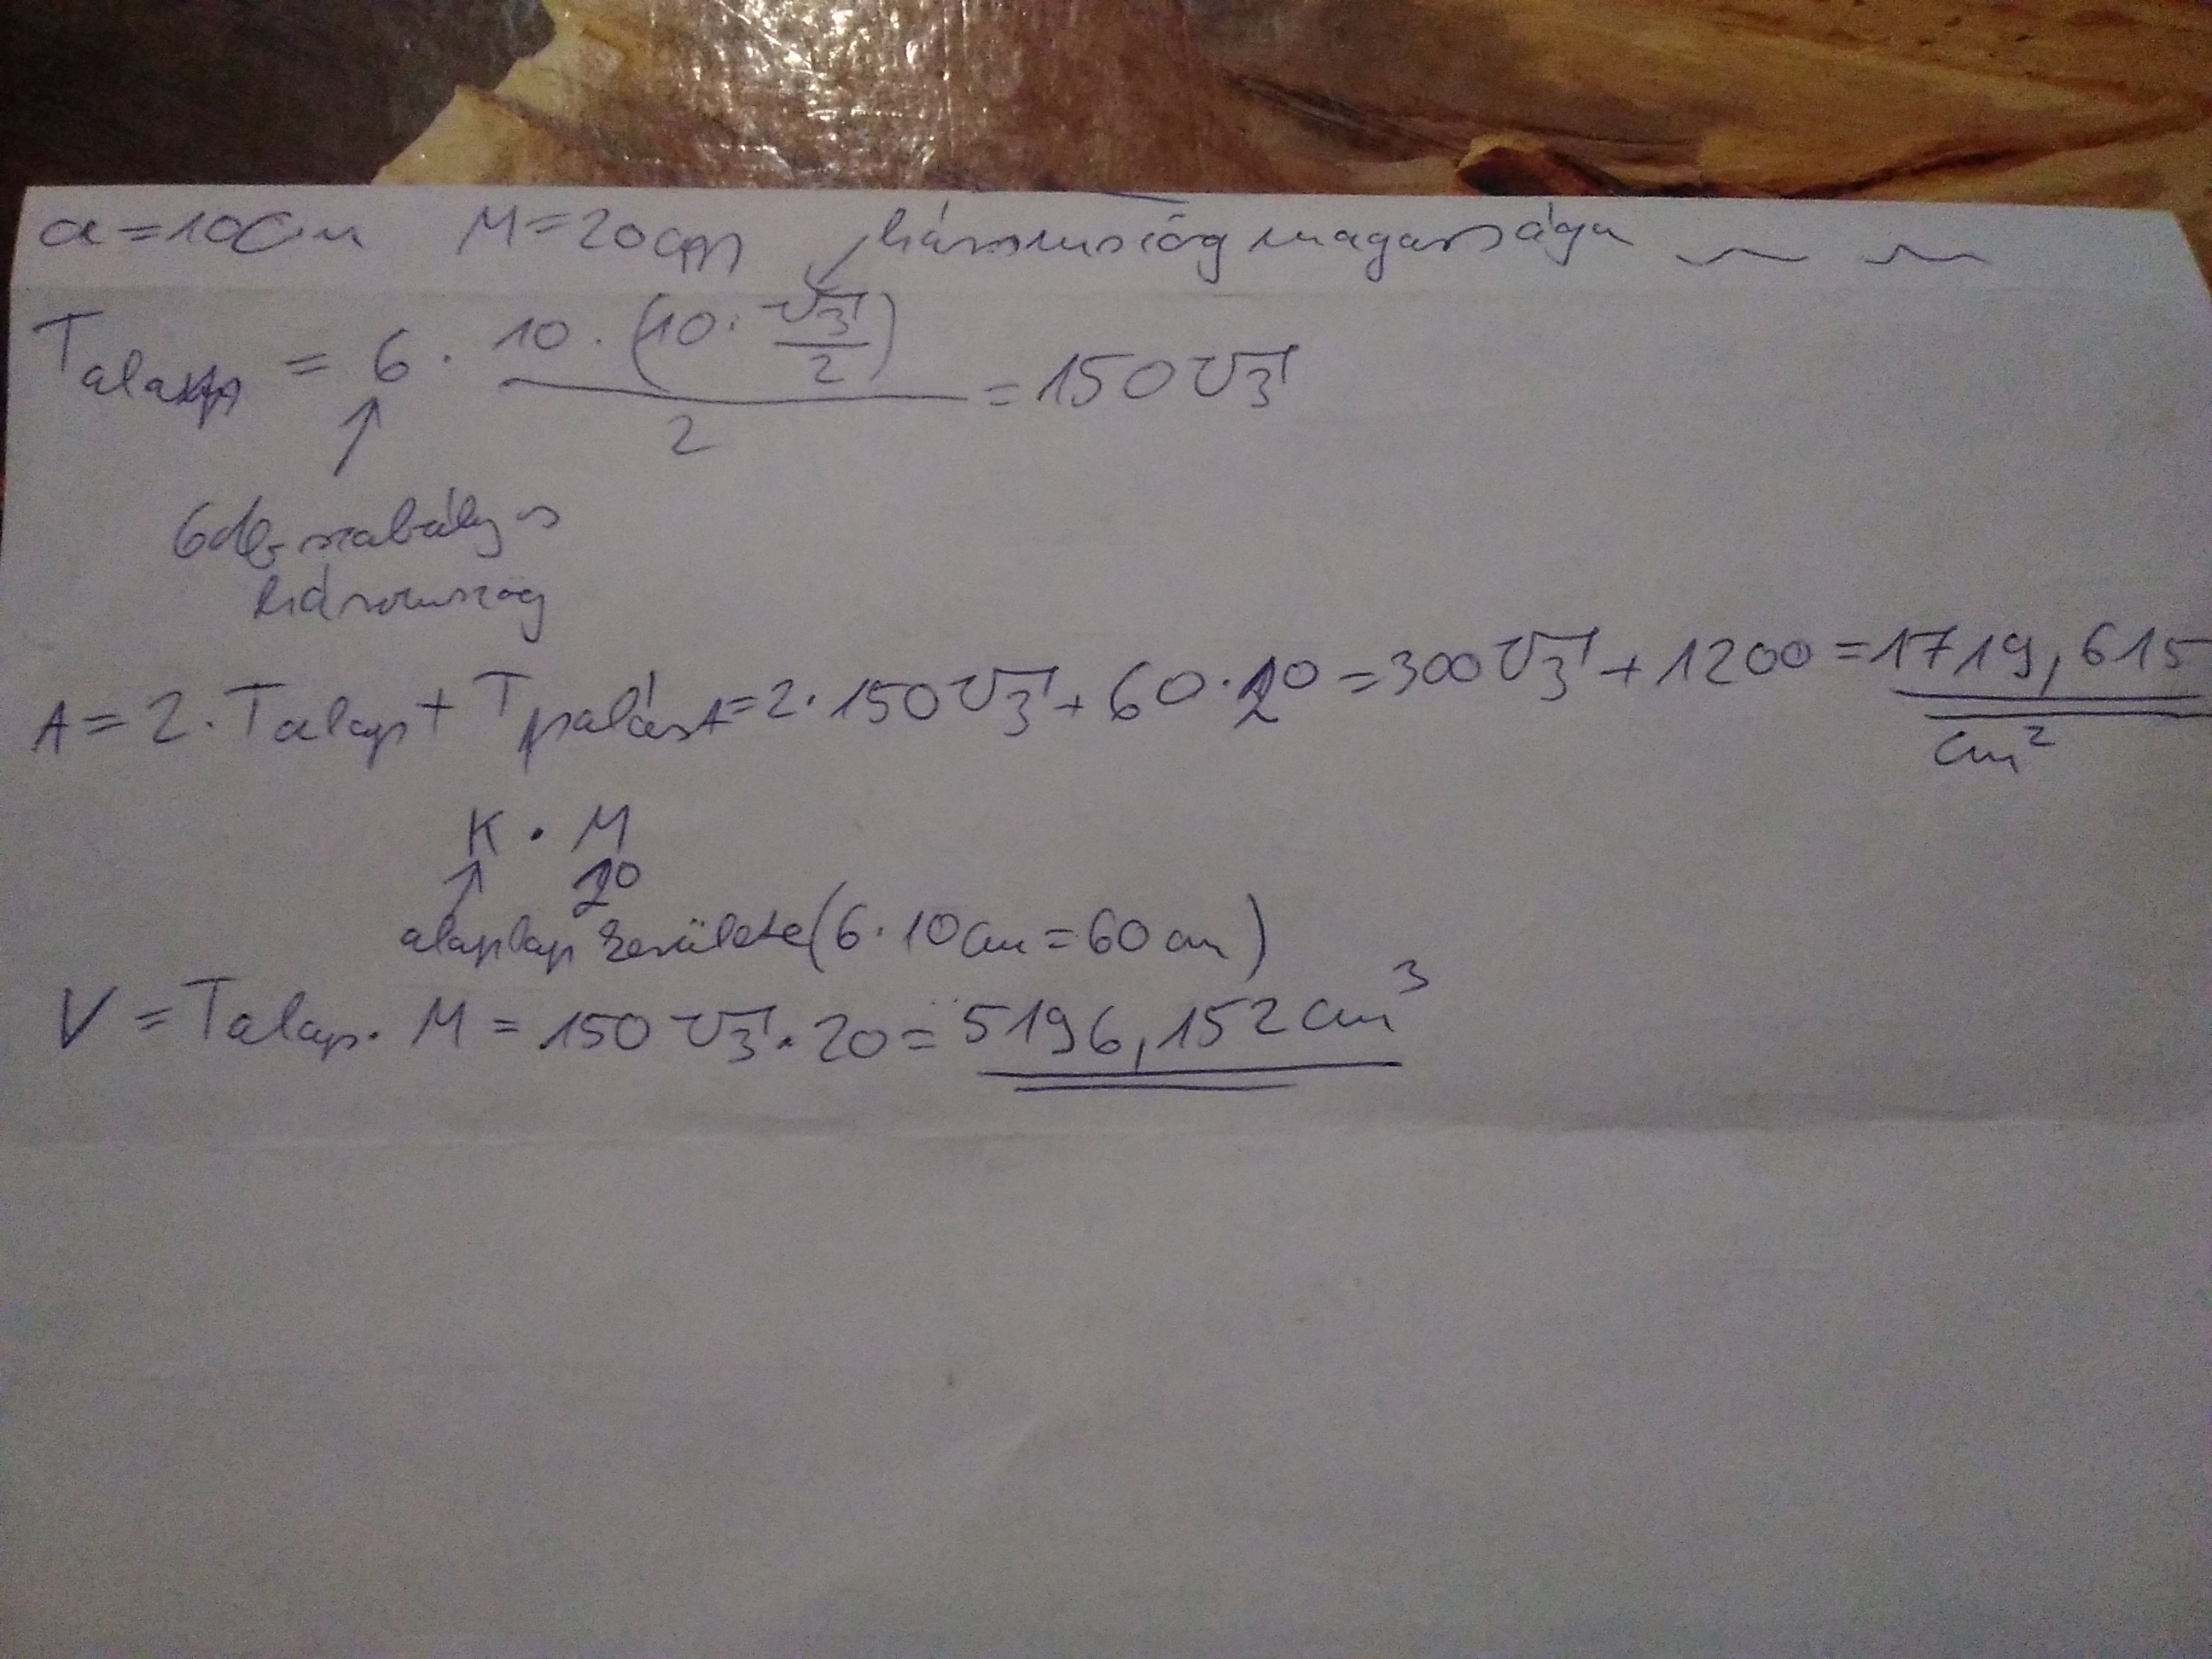 a=10cm M=20cm háromszög magassága
Talap = 6 · 10 · (10 · √3/2) / 2 = 150√3
6db szabályos
háromszög
A = 2 · Talap + Tpalást = 2 · 150√3 + 60 · 20 = 300√3 + 1200 = 1719,615
cm²
K · M
20
alaplap kerülete (6 · 10cm = 60cm)
V = Talap · M = 150√3 · 20 = 5196,152cm³